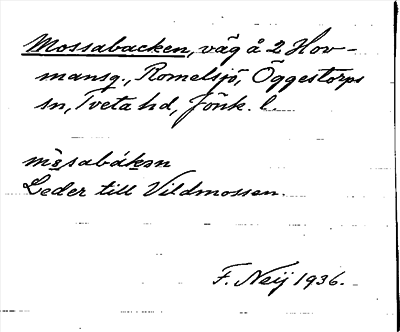 Mossabacken, väg å 2 Hov-
mansg., Romelsjö, Öggestorps
sn, Tveta hd, Jönk. l.
måsabákən
Leder till Vildmossen.
F. Neij 1936.